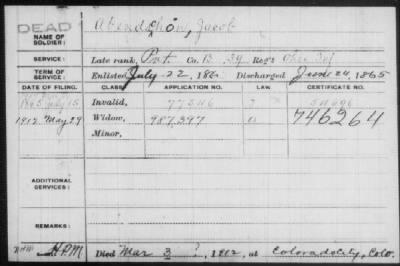 DEAD
NAME OF SOLDIER: Abendshön, Jacob
SERVICE: Late rank, Pvt. Co. B, 39 Reg't Ohio Inf
TERM OF SERVICE: Enlisted July 22, 186 Discharged June 24, 1865
DATE OF FILING. CLASS. APPLICATION NO. LAW. CERTIFICATE NO.
1865 July 15 Invalid, 77546
1912 May 29 Widow, 987,397 746264
Minor,
ADDITIONAL SERVICES:
REMARKS:
Died Mar 3 ?, 1912, at Colorado City, Colo.